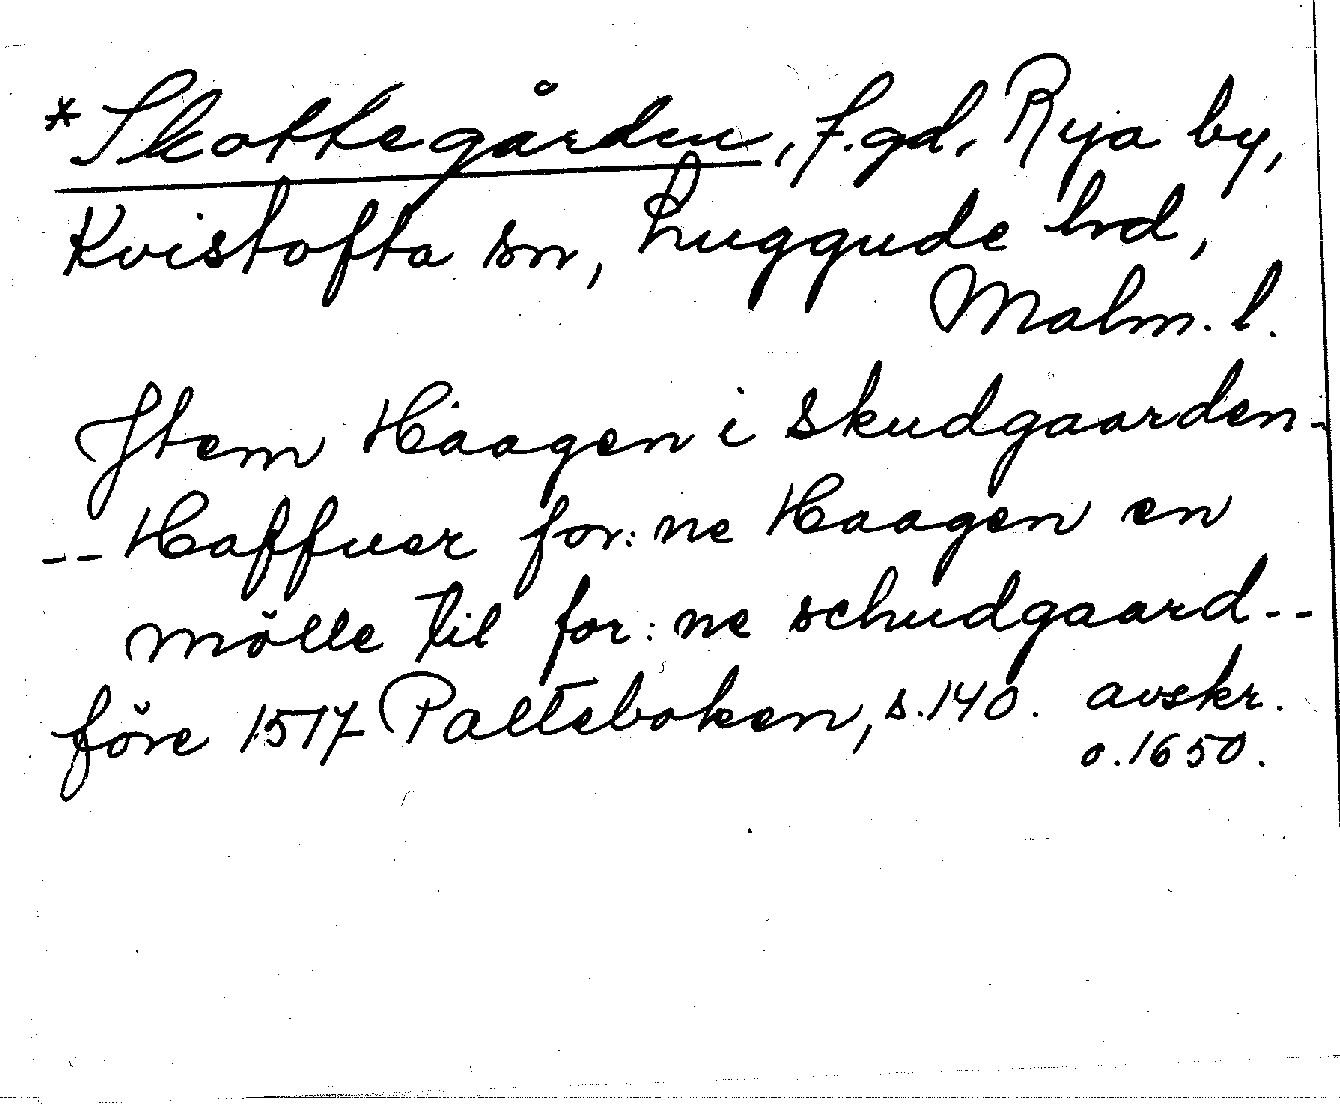 *Skottegården, f.gd. Rya by,
Kvistofta sn, Luggude hd,
Malm. l.
Jtem Haagen i skudgaarden-
-- Haffuer for: ne Haagen en
mölle til for: ne schudgaard--
före 1517 Palteboken, s.140. avskr.
o.1650.